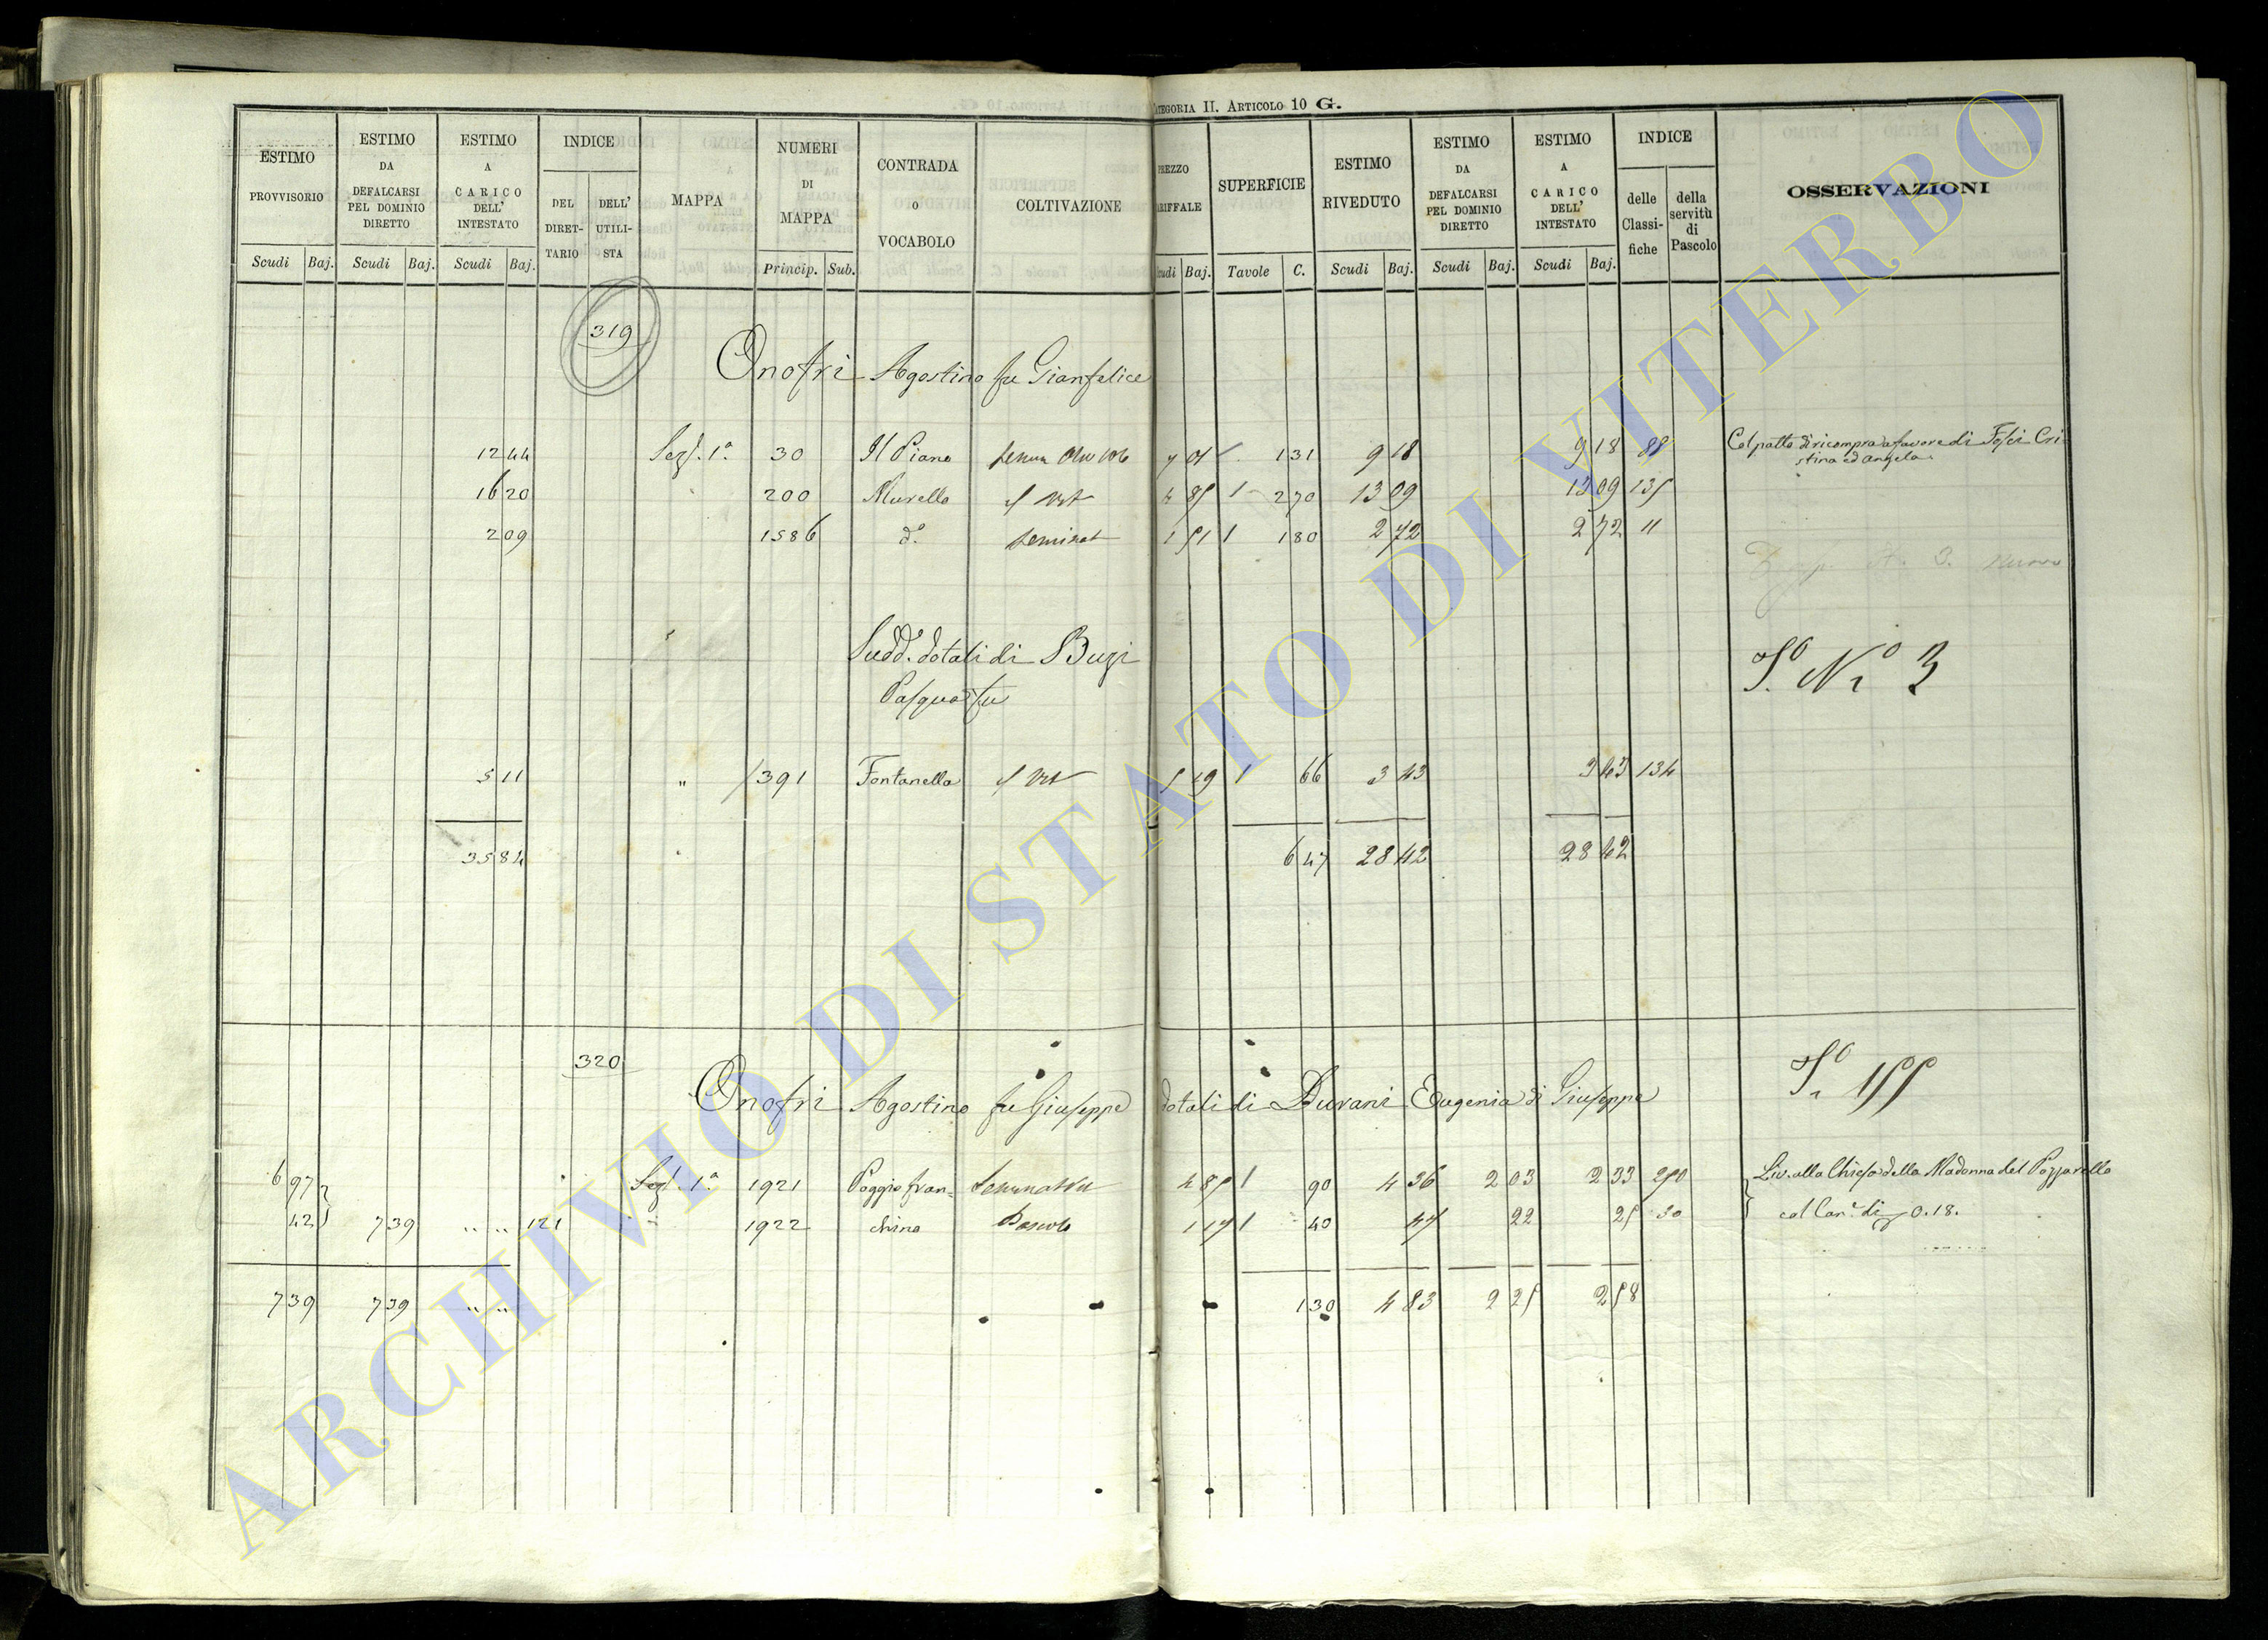 CATEGORIA II. ARTICOLO 10 G.
ESTIMO PROVVISORIO Scudi Baj.
ESTIMO DA DEFALCARSI PEL DOMINIO DIRETTO Scudi Baj.
ESTIMO A CARICO DELL' INTESTATO Scudi Baj.
INDICE DEL DIRET-TARIO DELL' UTILI-STA
MAPPA
NUMERI DI MAPPA Princip. Sub.
CONTRADA O VOCABOLO
COLTIVAZIONE
PREZZO TARIFFALE Scudi Baj.
SUPERFICIE Tavole C.
ESTIMO RIVEDUTO Scudi Baj.
ESTIMO DA DEFALCARSI PEL DOMINIO DIRETTO Scudi Baj.
ESTIMO A CARICO DELL' INTESTATO Scudi Baj.
INDICE delle Classi-fiche della servitù di Pascolo
OSSERVAZIONI
319
Onofri Agostino fu Gianfelice
12 44 Sez. 1ª 30 Il Piano 1 31 9 18 9 18 88 Col patto di ricompra a favore di Fosci Cri
stina ed Angela
16 20 200 Murella 4 85 2 70 13 09 13 09 135
2 09 1586 d.º Seminat 1 51 1 80 2 72 2 72 11
Sudd.º dotali di Buzi
Pasqua fu
Sº Nº 3
5 11 " 1391 Fontanella 5 19 66 3 43 3 43 134
35 84 6 47 28 42 28 42
320
Onofri Agostino fu Giuseppe dotali di Durani Eugenia di Giuseppe
Sº 155
6 97 Sez. 1ª 1921 Poggio fran= Seminativo 4 85 90 4 36 2 03 2 33 290 Liv. alla Chiesa della Madonna del Pozzarello
42 7 39 " " 121 1922 chino Pascolo 1 17 40 47 22 25 30 col Can.e di 0.18.
7 39 7 39 " " 1 30 4 83 2 25 2 58
ARCHIVIO DI STATO DI VITERBO